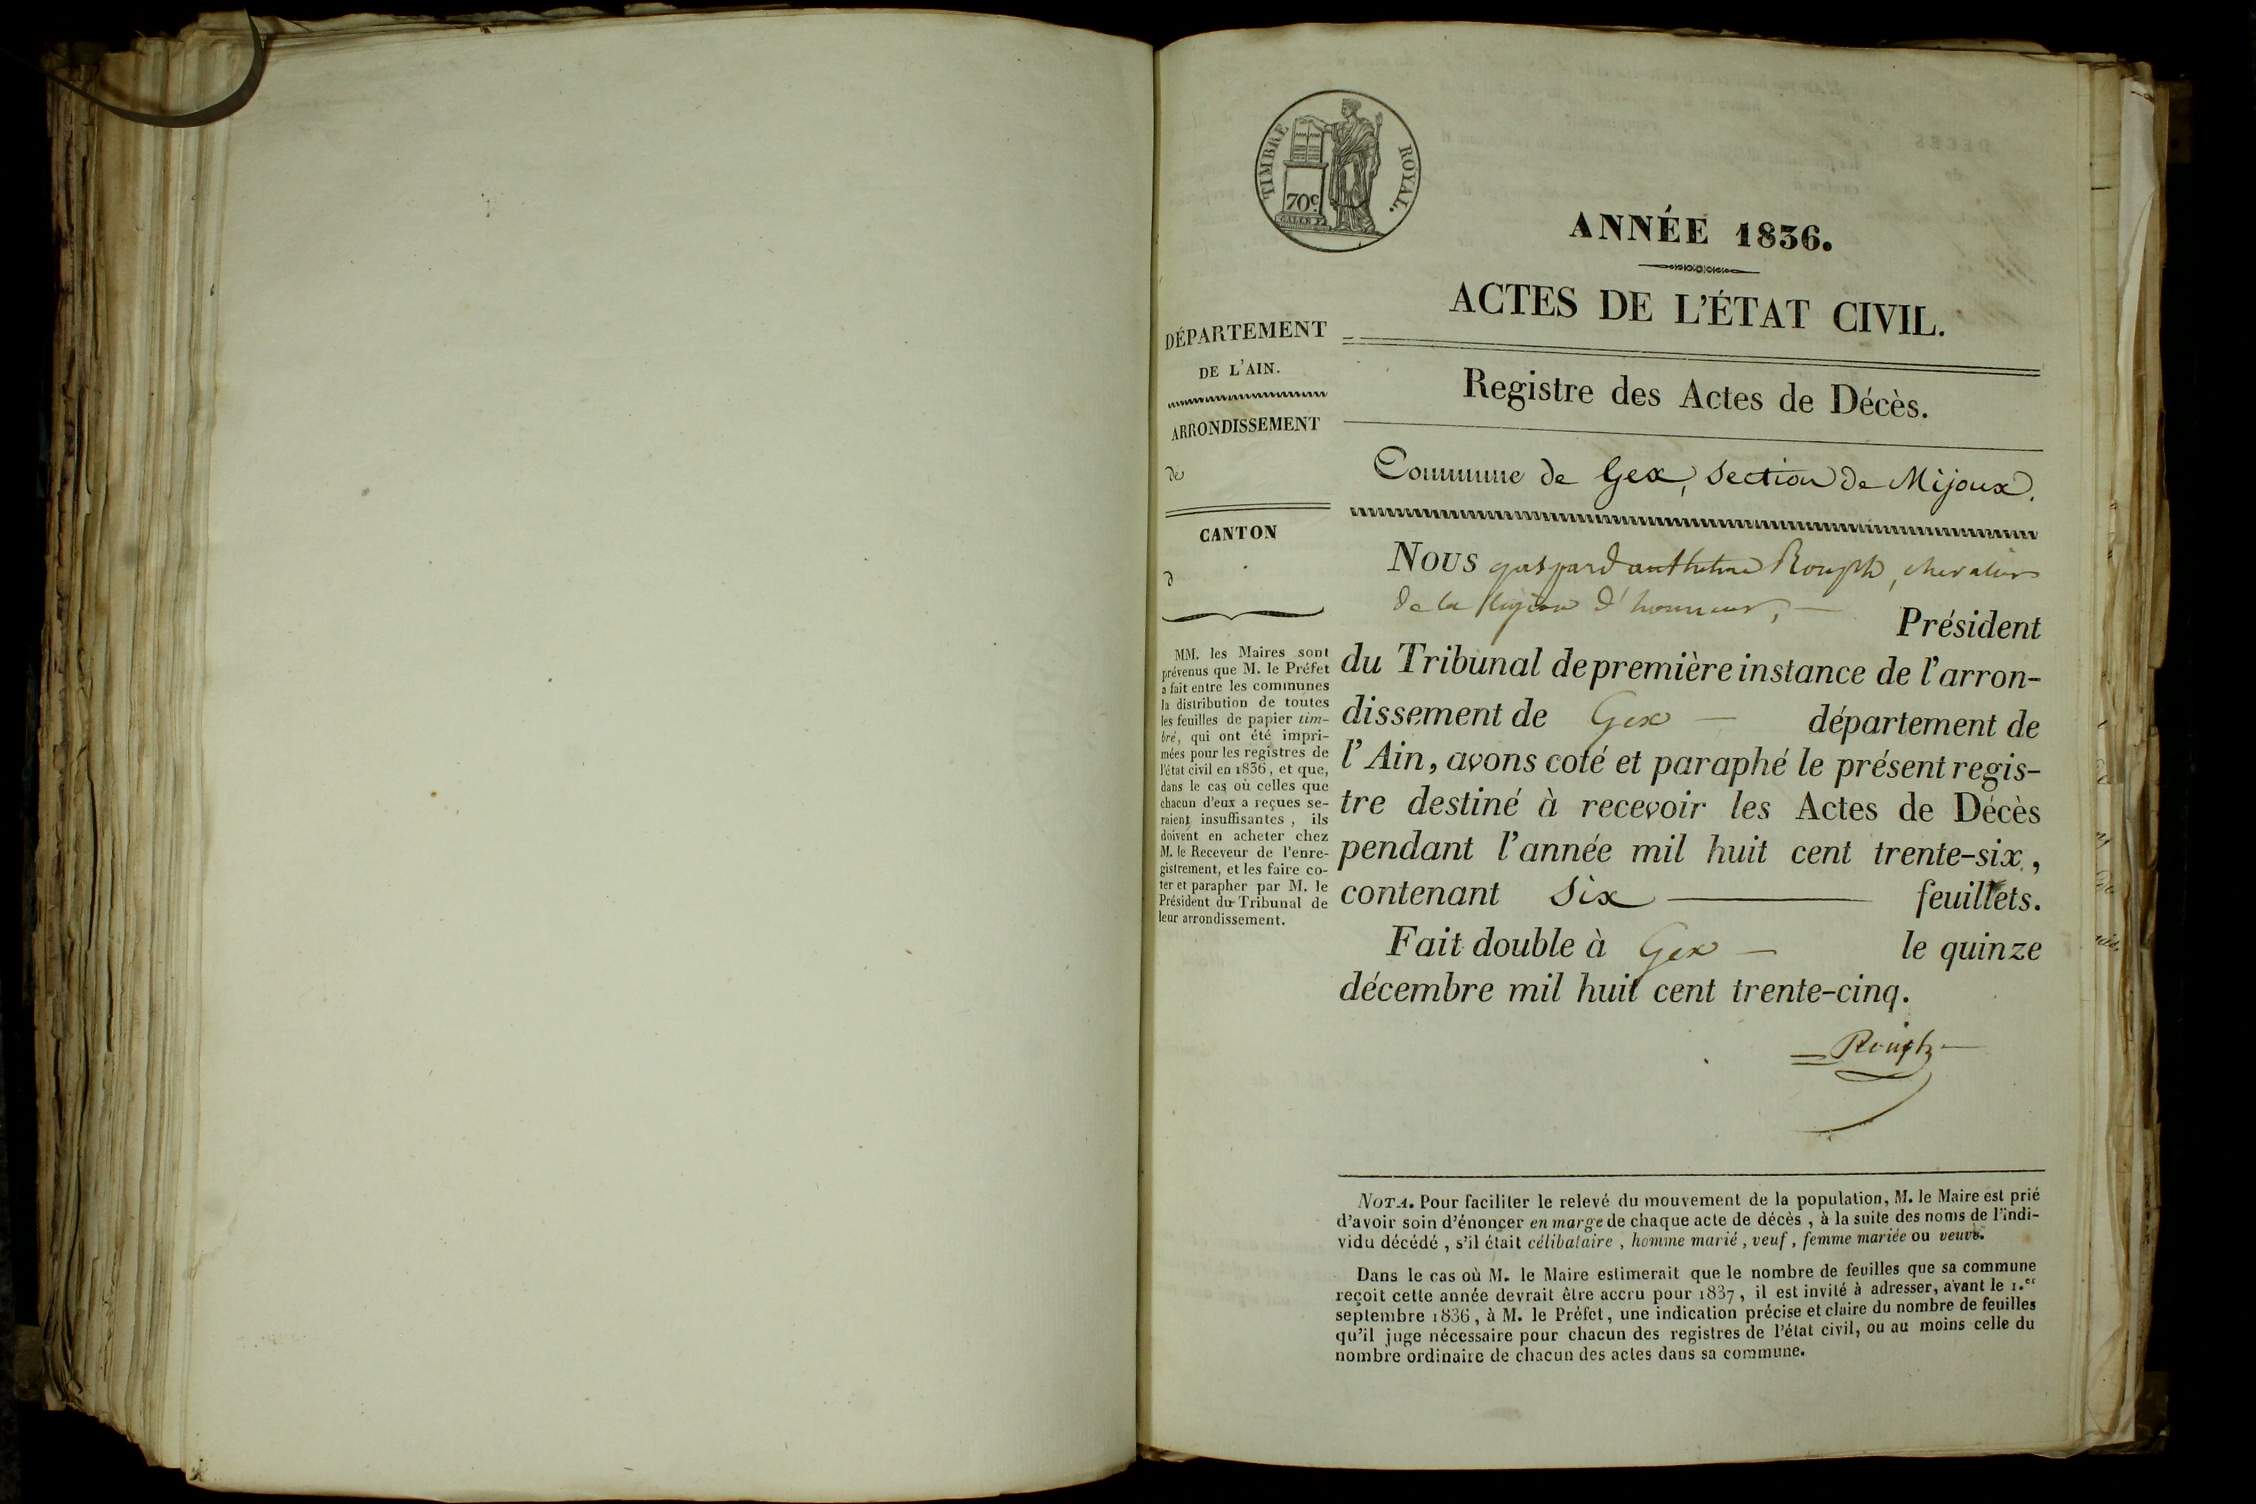 TIMBRE ROYAL.
70c.
GALLE F.
ANNÉE 1836.
ACTES DE L'ÉTAT CIVIL.
DÉPARTEMENT
DE L'AIN.
ARRONDISSEMENT
de
CANTON
d
MM. les Maires sont
prévenus que M. le Préfet
a fait entre les communes
la distribution de toutes
les feuilles de papier tim-
bré, qui ont été impri-
mées pour les registres de
l'état civil en 1836, et que,
dans le cas où celles que
chacun d'eux a reçues se-
raient insuffisantes, ils
doivent en acheter chez
M. le Receveur de l'enre-
gistrement, et les faire co-
ter et parapher par M. le
Président du Tribunal de
leur arrondissement.
Registre des Actes de Décès.
Commune de Gex, Section de Mijoux.
Nous gaspard anthelme Rouph, chevalier
de la légion d'honneur, — Président
du Tribunal de première instance de l'arron-
dissement de Gex — département de
l'Ain, avons coté et paraphé le présent regis-
tre destiné à recevoir les Actes de Décès
pendant l'année mil huit cent trente-six,
contenant Six — feuillets.
Fait double à Gex — le quinze
décembre mil huit cent trente-cinq.
Rouph
NOTA. Pour faciliter le relevé du mouvement de la population, M. le Maire est prié
d'avoir soin d'énoncer en marge de chaque acte de décès, à la suite des noms de l'indi-
vidu décédé, s'il était célibataire, homme marié, veuf, femme mariée ou veuve.
Dans le cas où M. le Maire estimerait que le nombre de feuilles que sa commune
reçoit cette année devrait être accru pour 1837, il est invité à adresser, avant le 1.er
septembre 1836, à M. le Préfet, une indication précise et claire du nombre de feuilles
qu'il juge nécessaire pour chacun des registres de l'état civil, ou au moins celle du
nombre ordinaire de chacun des actes dans sa commune.